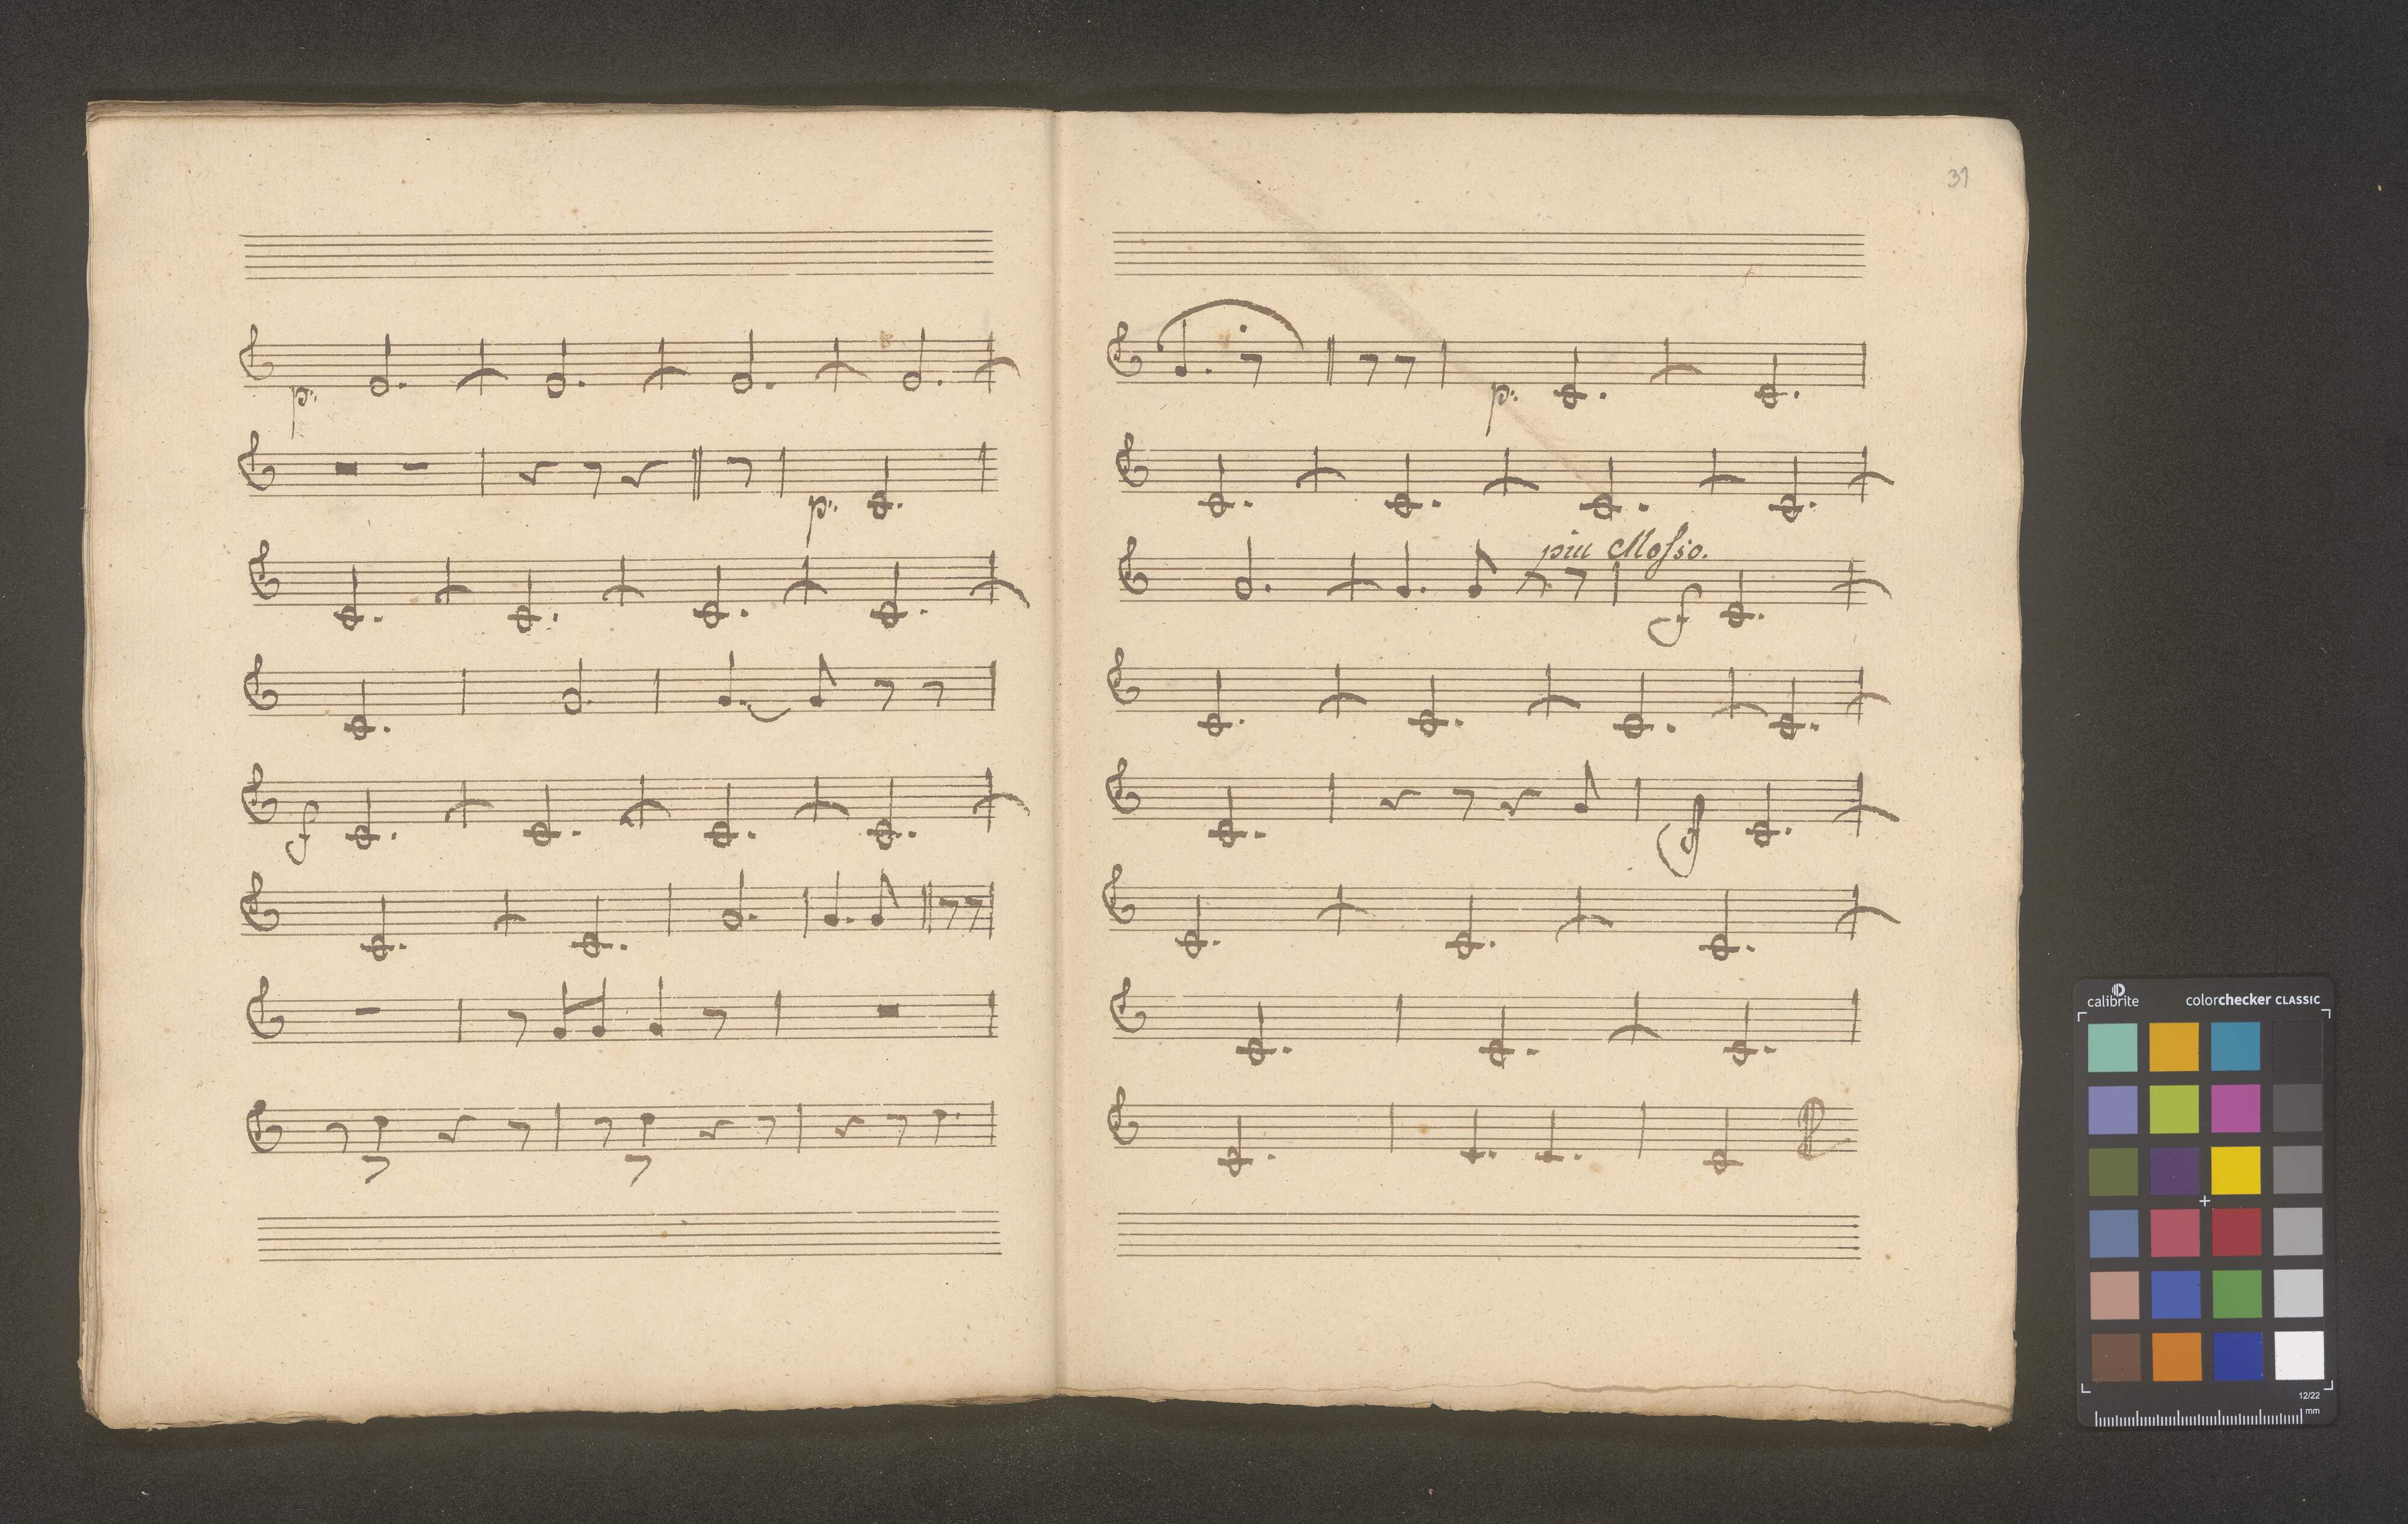 p:
p:
f
31
p:
piu Mosso.
f
ff
calibrite
colorchecker CLASSIC
12/22
mm